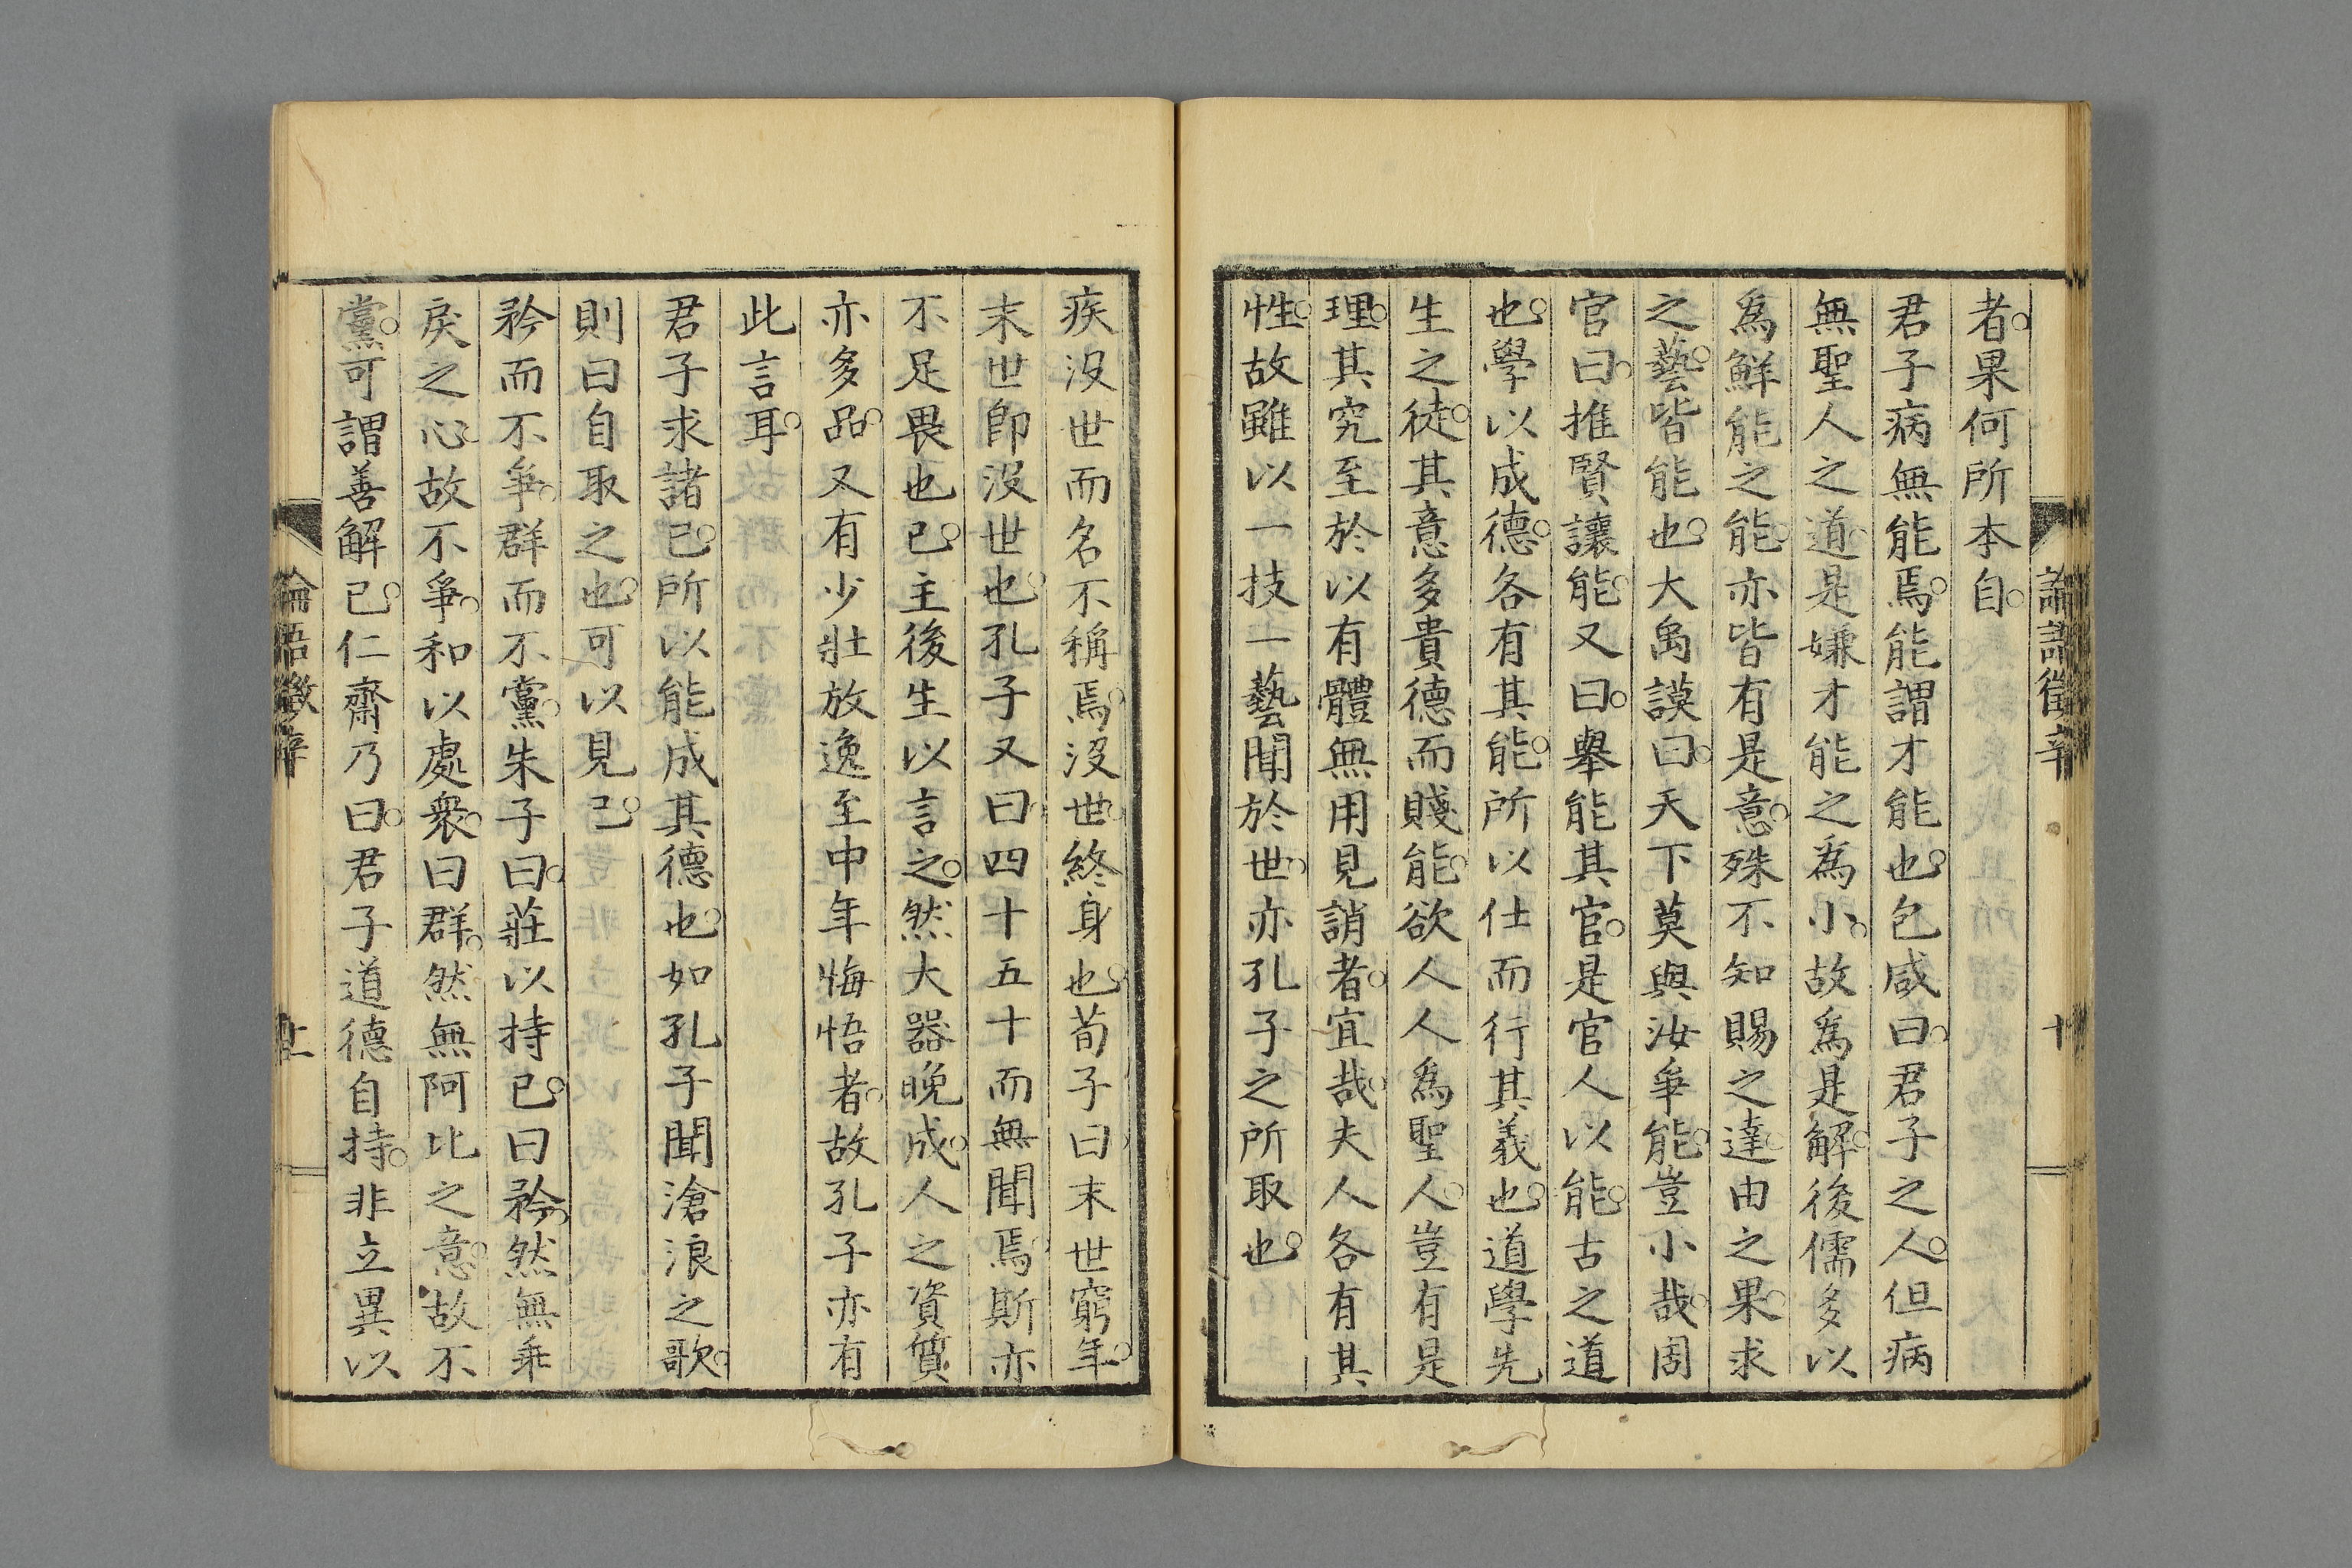 論語徵 辛
十
者果何所本自
君子病無能焉能謂才能也包咸曰君子之人但病
無聖人之道是嫌才能之爲小故爲是解後儒多以
爲鮮能之能亦皆有是意殊不知賜之達由之果求
之藝皆能也大禹謨曰天下莫與汝爭能豈小哉周
官曰推賢讓能又曰舉能其官是官人以能古之道
也學以成德各有其能所以仕而行其義也道學先
生之徒其意多貴德而賤能欲人人爲聖人豈有是
理其究至於以有體無用見誚者宜哉夫人各有其
性故雖以一技一藝聞於世亦孔子之所取也
疾沒世而名不稱焉沒世終身也荀子曰末世窮年
末世卽沒世也孔子又曰四十五十而無聞焉斯亦
不足畏也已主後生以言之然大器晚成人之資質
亦多品又有少壯放逸至中年悔悟者故孔子亦有
此言耳
君子求諸己所以能成其德也如孔子聞滄浪之歌
則曰自取之也可以見已
矜而不爭群而不黨朱子曰莊以持己曰矜然無乖
戾之心故不爭和以處衆曰群然無阿比之意故不
黨可謂善解已仁齋乃曰君子道德自持非立異以
論語徵 辛